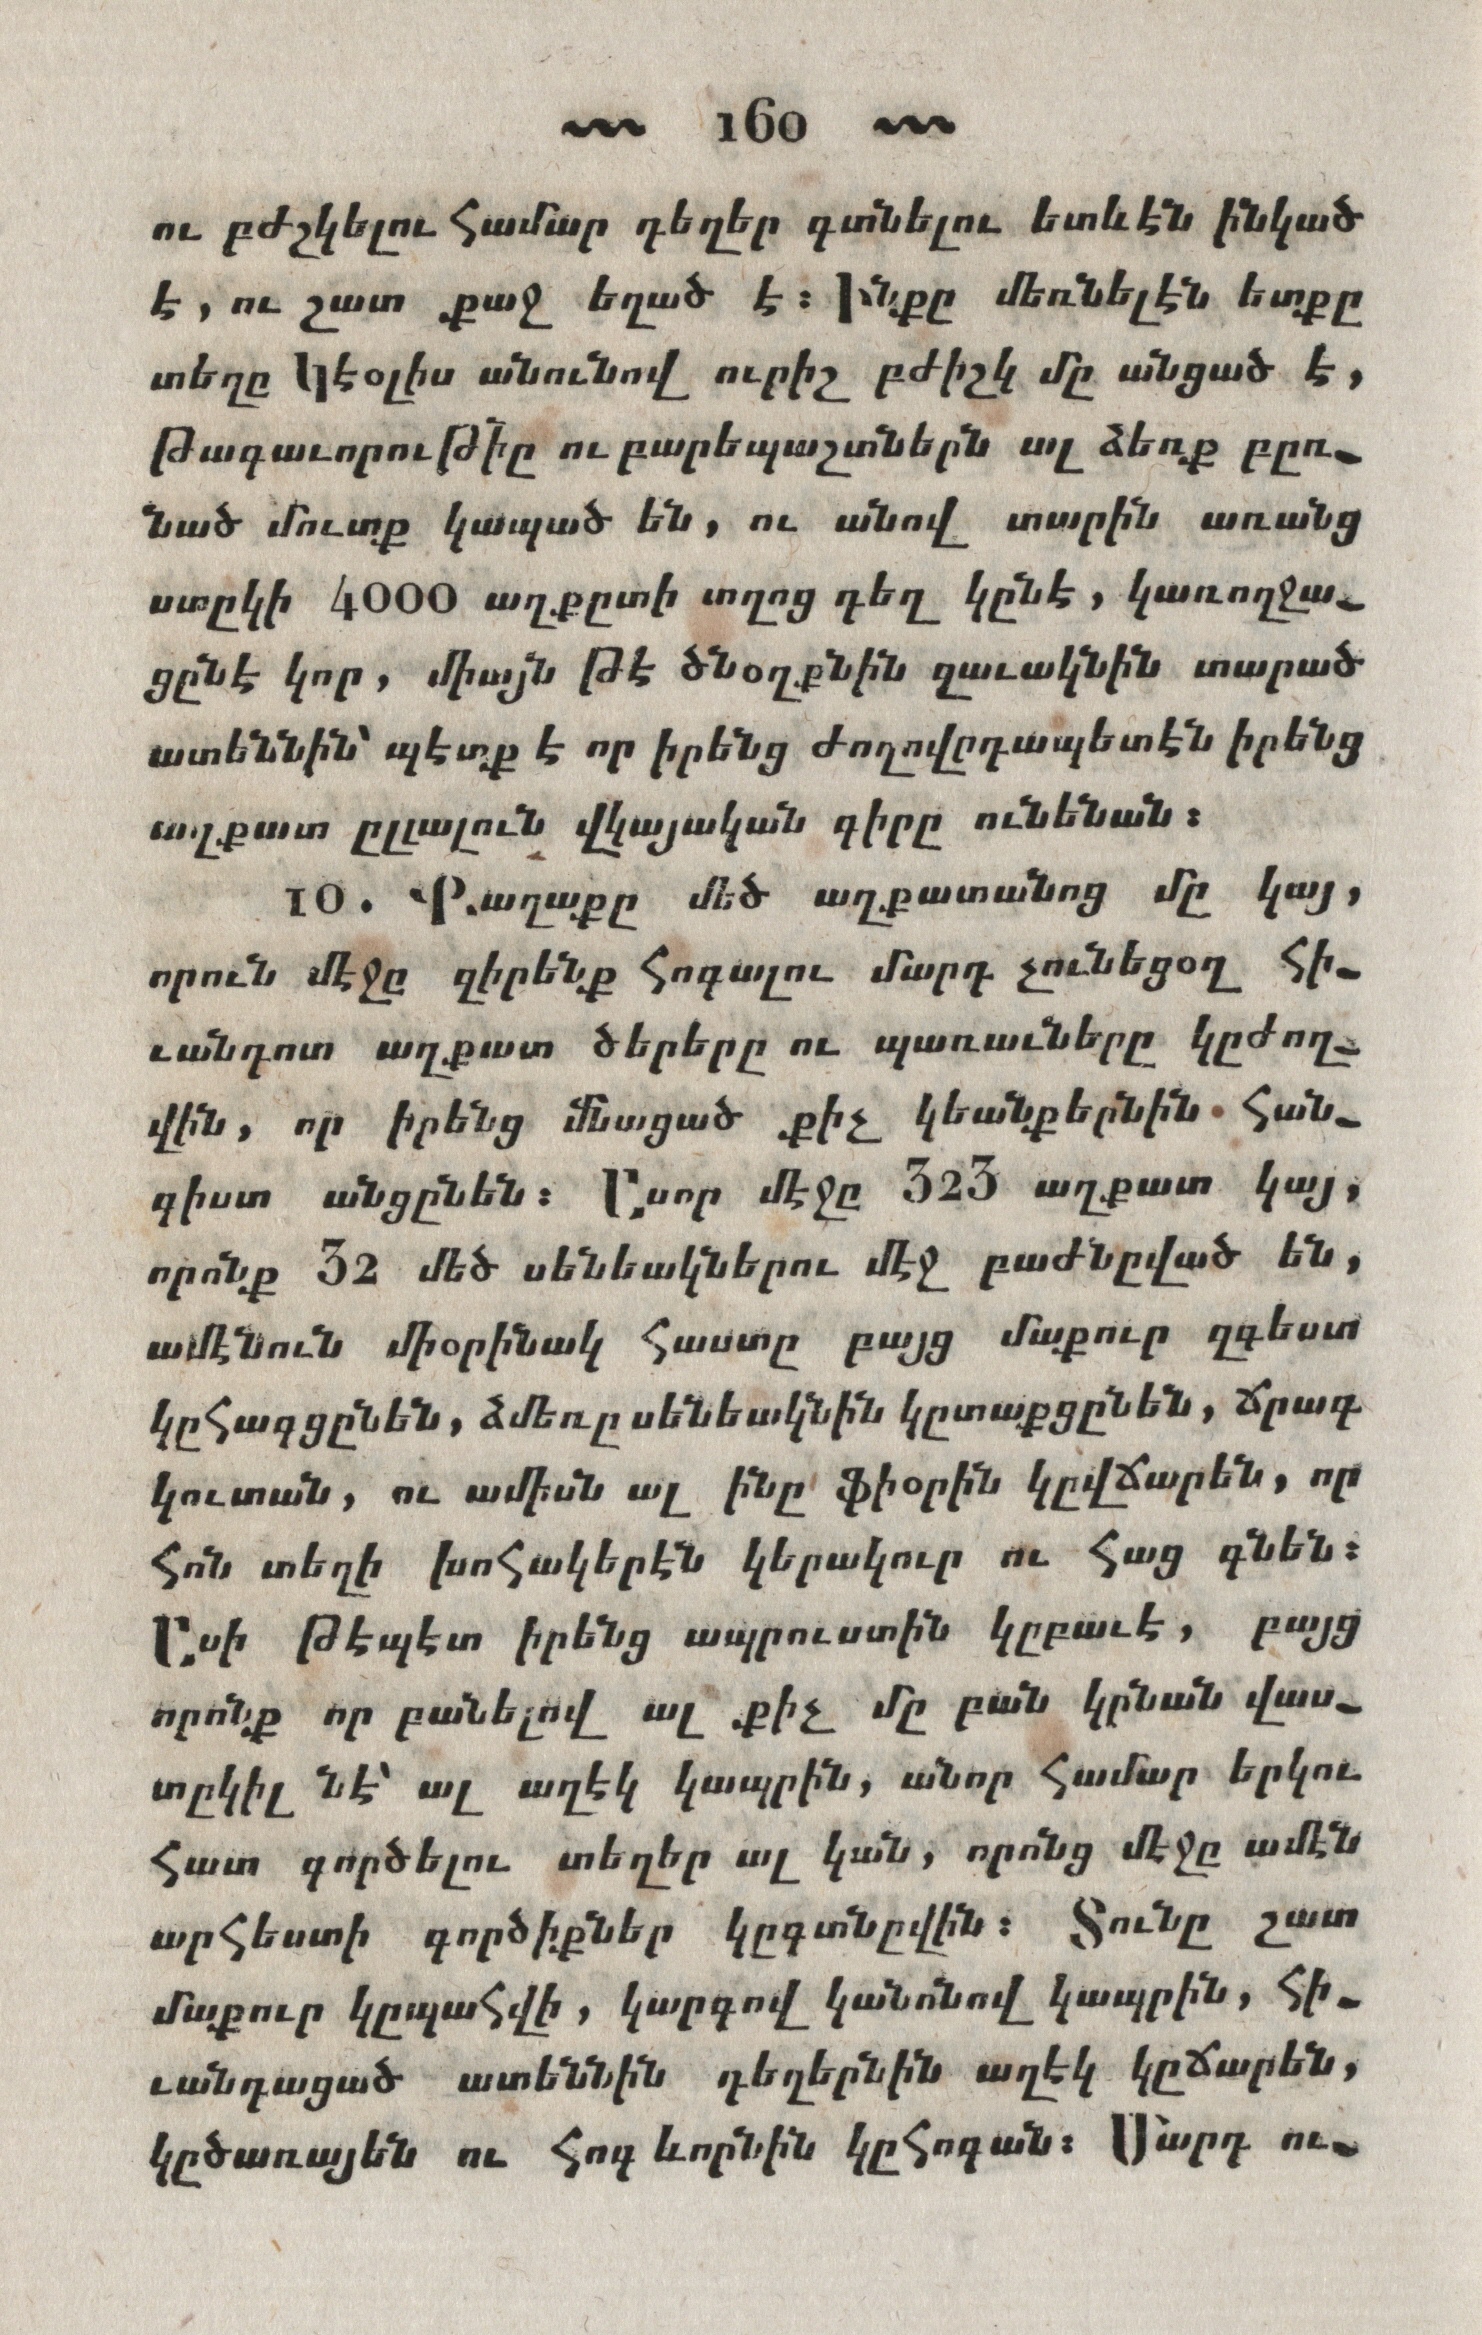 160
ու բժշկելու համար դեղեր գտնելու ետևէն ինկած
է, ու շատ քաջ եղած է։ Ինքը մեռնելէն ետքը
տեղը Կէօլիս անունով ուրիշ բժիշկ մը անցած է,
Թագաւորութիը ու բարեպաշտներն ալ ձեռք բըռ-
նած մուտք կապած են, ու անով տարին առանց
ստըկի 4000 աղքըտի տղոց դեղ կընէ, կառողջա-
ցընէ կոր, միայն թէ ծնօղքնին զաւակնին տարած
ատեննին՝ պէտք է որ իրենց ժողովըդապետէն իրենց
աղքատ ըլլալուն վկայական գիրը ունենան։
10. Քաղաքը մեծ աղքատանոց մը կայ,
որուն մէջը զիրենք հոգալու մարդ չունեցօղ հի-
ւանդոտ աղքատ ծերերը ու պառաւները կըժող-
վին, որ իրենց մնացած քիչ կեանքերնին հան-
գիստ անցընեն։ Ըսոր մէջը 323 աղքատ կայ,
որոնք 32 մեծ սենեակներու մէջ բաժնըված են,
ամէնուն միօրինակ հաստը բայց մաքուր զգեստ
կըհագցընեն, ձմեռը սենեակնին կըտաքցընեն, ճրագ
կուտան, ու ամիսն ալ ինը ֆիօրին կըվճարեն, որ
հոն տեղի խոհակերէն կերակուր ու հաց գնեն։
Ըսի թէպէտ իրենց ապրուստին կըբաւէ, բայց
որոնք որ բանելով ալ քիչ մը բան կրնան վաս-
տըկիլ նէ՝ ալ աղէկ կապրին, անոր համար երկու
հատ գործելու տեղեր ալ կան, որոնց մէջը ամէն
արհեստի գործիքներ կըգտնըվին։ Տունը շատ
մաքուր կըպահվի, կարգով կանոնով կապրին, հի-
ւանդացած ատեննին դեղերնին աղէկ կըճարեն,
կըծառայեն ու հոգևորնին կըհոգան։ Մարդ ու-